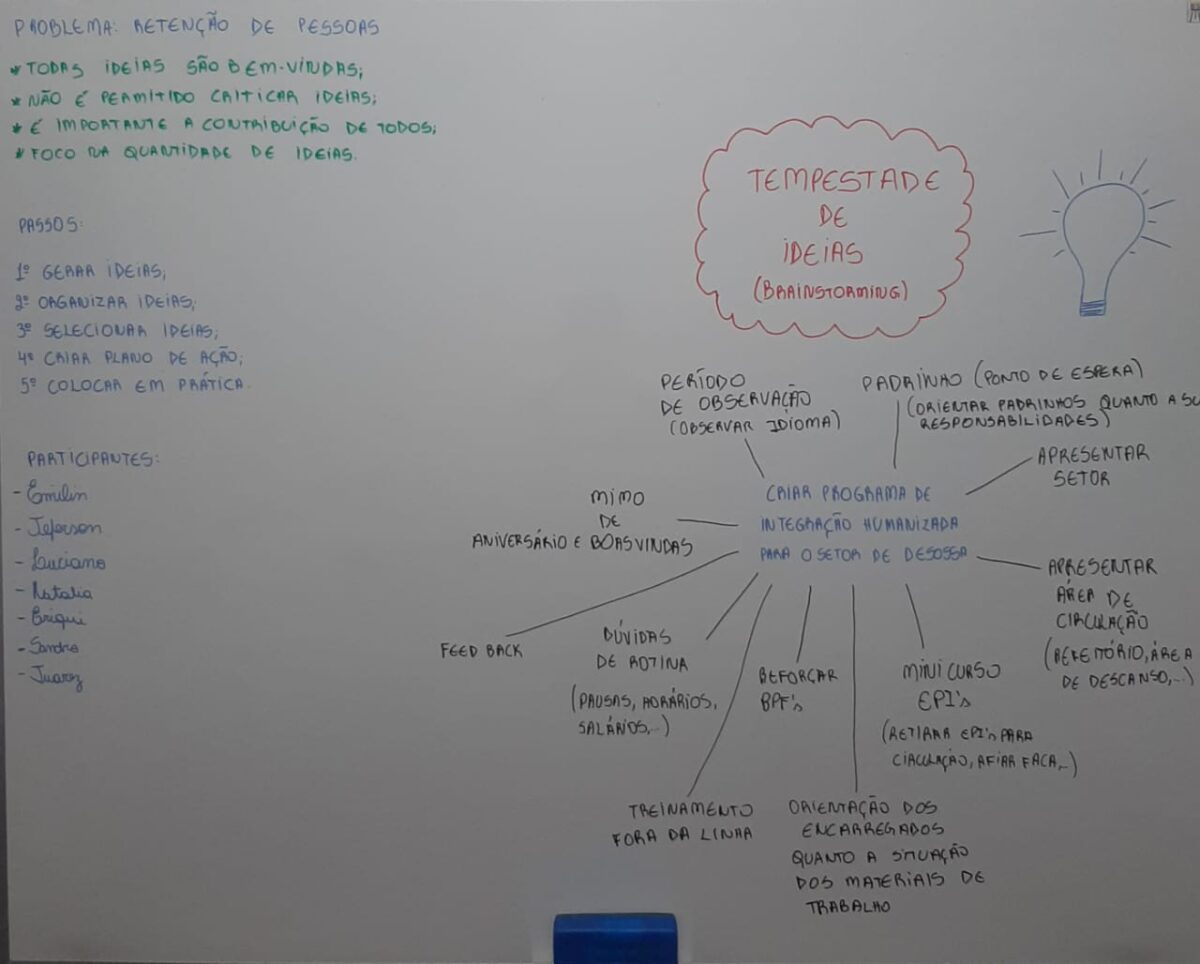 PROBLEMA: RETENÇÃO DE PESSOAS
* TODAS IDEIAS SÃO BEM-VINDAS;
* NÃO É PERMITIDO CRITICAR IDEIAS;
* É IMPORTANTE A CONTRIBUIÇÃO DE TODOS;
* FOCO NA QUANTIDADE DE IDEIAS.
PASSOS:
1º GERAR IDEIAS;
2º ORGANIZAR IDEIAS;
3º SELECIONAR IDEIAS;
4º CRIAR PLANO DE AÇÃO;
5º COLOCAR EM PRÁTICA.
PARTICIPANTES:
- Emilin
- Jeferson
- Luciano
- Natalia
- Briqui
- Sandra
- Juarez
TEMPESTADE
DE
IDEIAS
(BRAINSTORMING)
PERÍODO
DE OBSERVAÇÃO
(OBSERVAR IDIOMA)
PADRINHO (PONTO DE ESPERA)
(ORIENTAR PADRINHOS QUANTO A SU
RESPONSABILIDADES)
APRESENTAR
SETOR
CRIAR PROGRAMA DE
INTEGRAÇÃO HUMANIZADA
PARA O SETOR DE DESOSSA
MIMO
DE
ANIVERSÁRIO E BOAS VINDAS
APRESENTAR
ÁREA DE
CIRCULAÇÃO
(REFEITÓRIO, ÁREA
DE DESCANSO,...)
FEED BACK
DÚVIDAS
DE ROTINA
(PAUSAS, HORÁRIOS,
SALÁRIOS,...)
REFORÇAR
BPF's
MINI CURSO
EPI's
(RETIRAR EPI's PARA
CIRCULAÇÃO, AFIAR FACA,...)
TREINAMENTO
FORA DA LINHA
ORIENTAÇÃO DOS
ENCARREGADOS
QUANTO A SITUAÇÃO
DOS MATERIAIS DE
TRABALHO